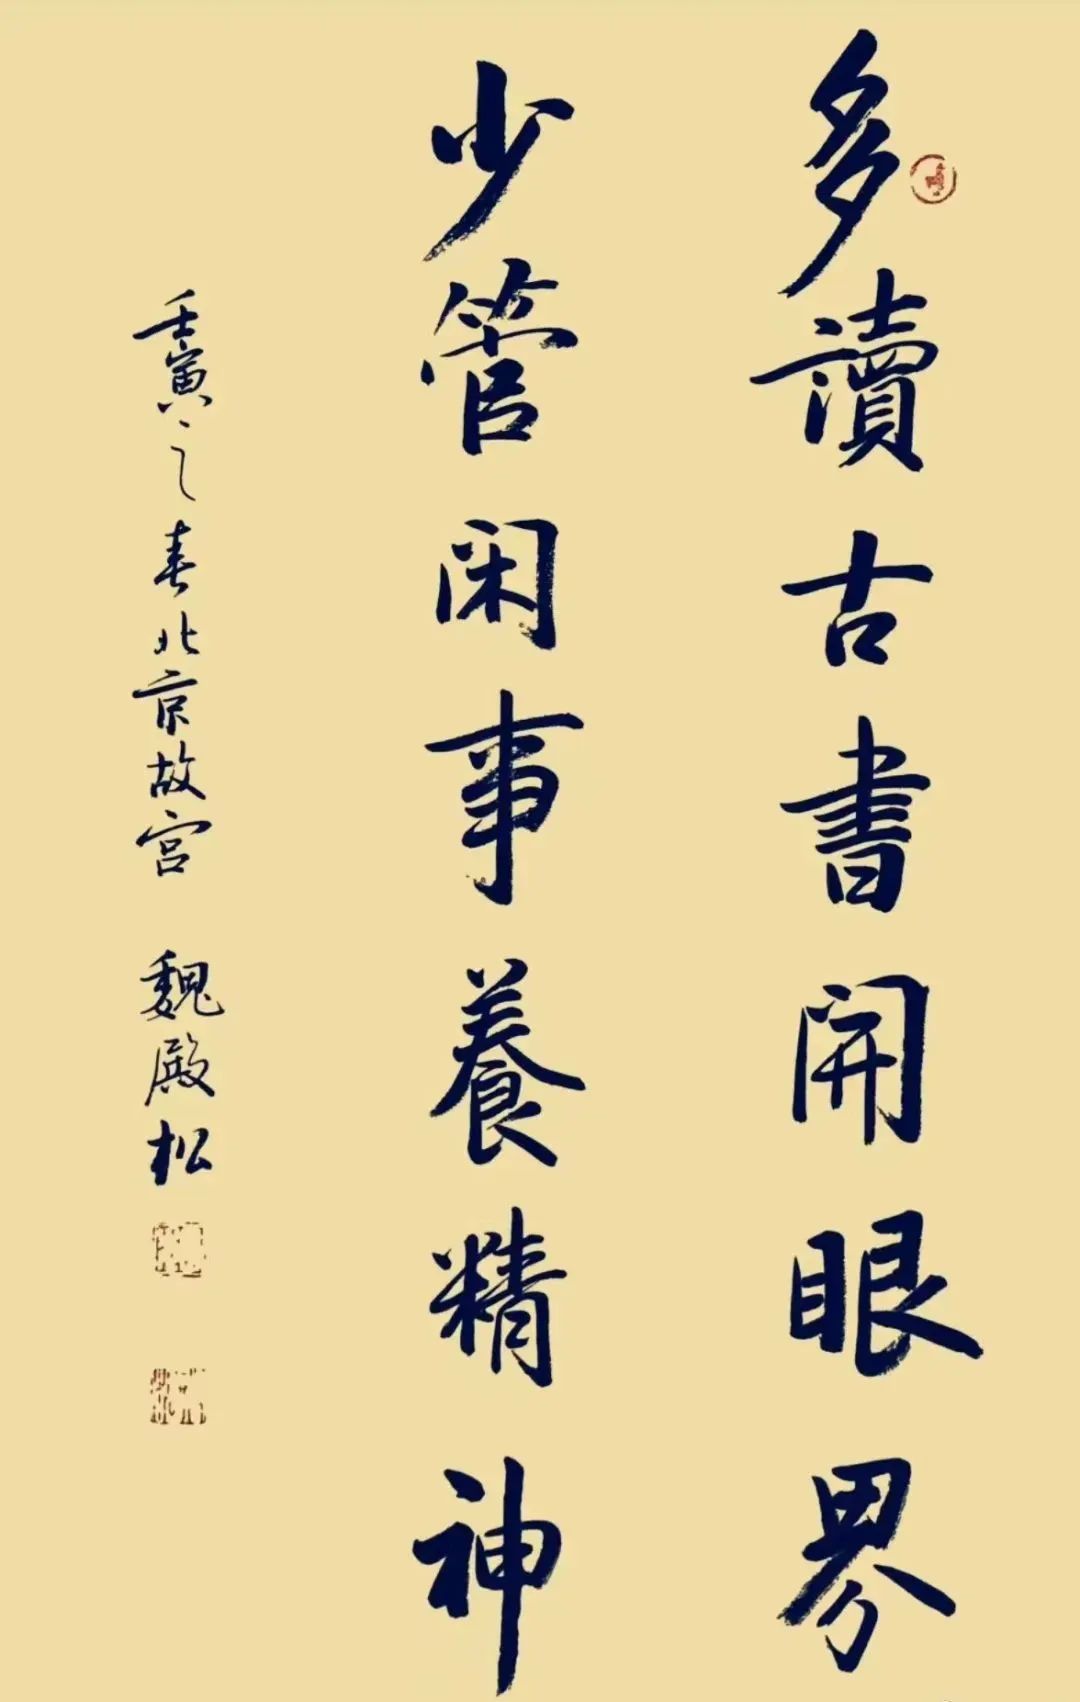 多讀古書開眼界
少管闲事養精神
壬寅之春北京故宫 魏殿松